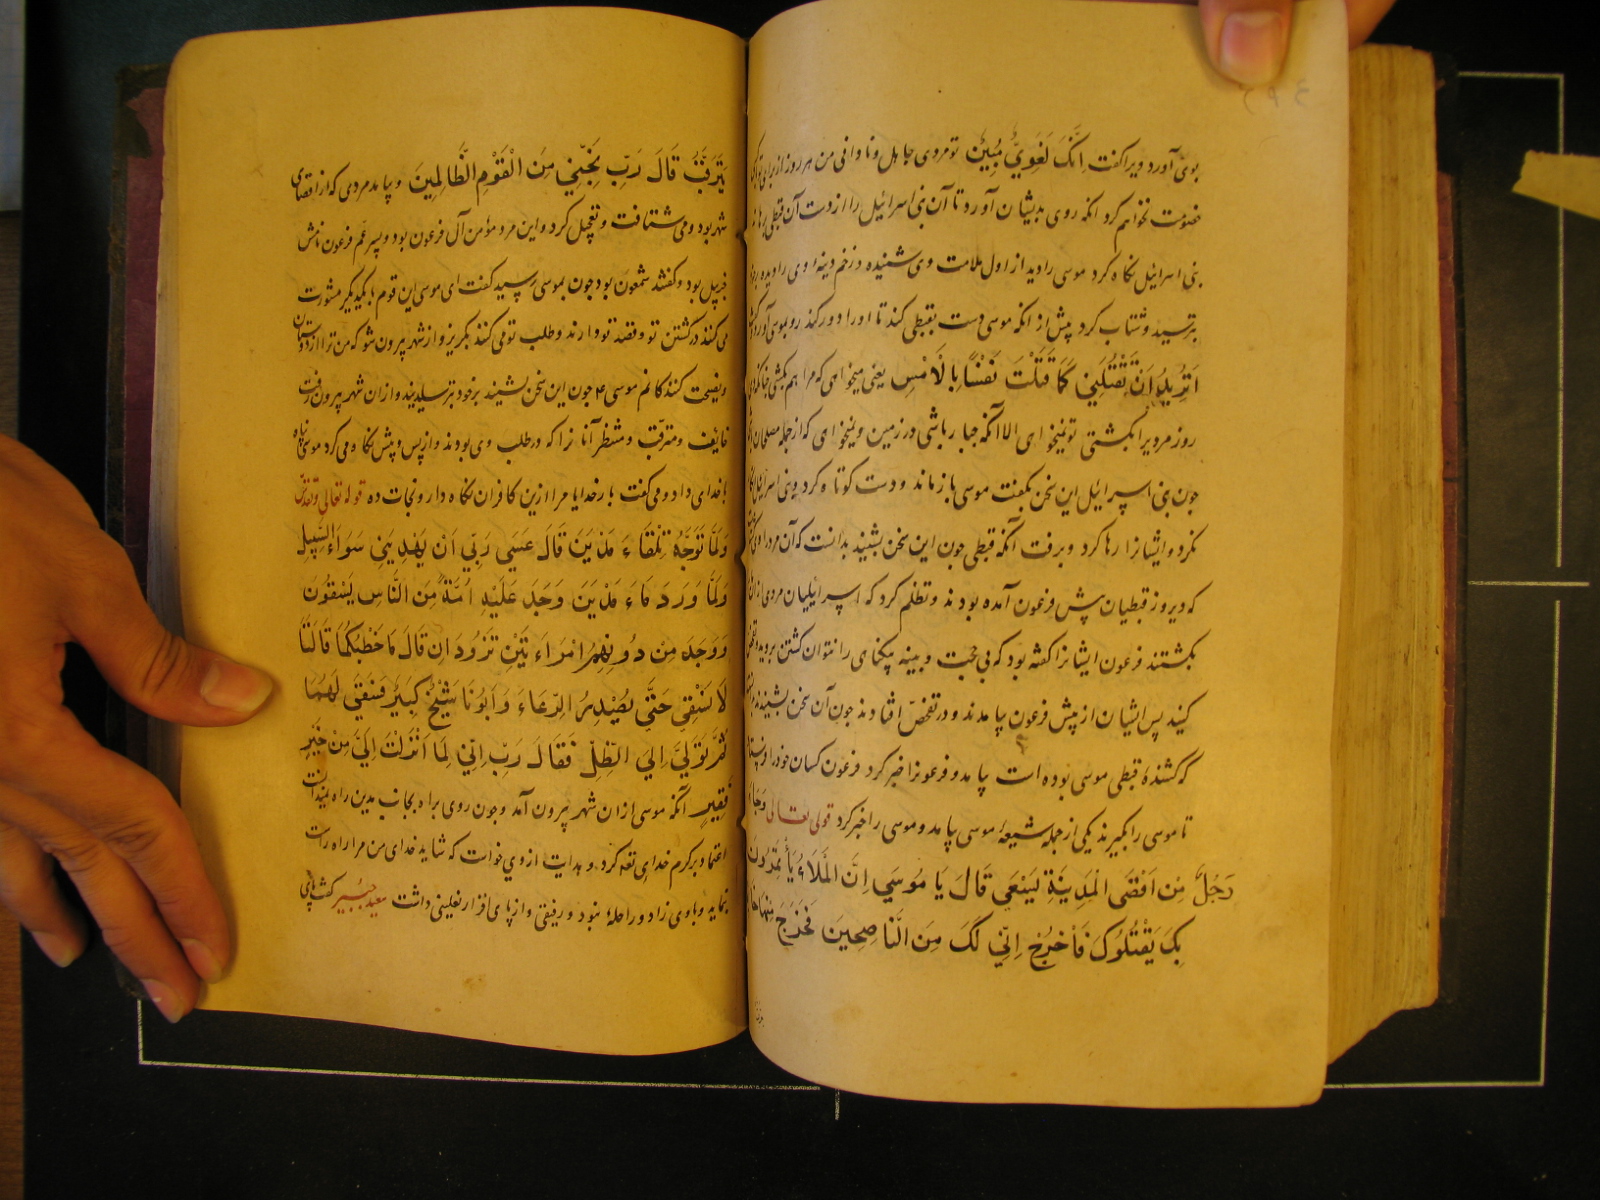 بوی آورد ویرا کفت اِنَّکَ لَغَوِیٌّ مُبِینٌ تو مردی جاهل ونا وافی من هر روز از برای تو با کسی
خصومت نخواهم کرد انکه روی بدیشان آورد تا آن بنی اسرائیل را از دست آن قبطی رها ند
بنی اسرائیل نکاه کرد موسی را دید از اول ملامت وی شنیده و زخم دینه او ی را دیده بود
بترسید وشتاب کرد پیش از انکه موسی دست بقبطی کند تا اورا دور کند رو بموسی آورد کفت
اَتُرِیدُ اَنْ تَقْتُلَنِی کَمَا قَتَلْتَ نَفْسًا بِالْاَمْسِ یعنی میخواهی که مرا هم بکشی چنانکه دی
روز مردیرا بکشتی تو نمیخواهی الا آنکه جبار باشی در زمین و نمیخواهی که از جمله مصلحان باشی
جون بنی اسرائیل این سخن بکفت موسی باز ماند و دست کوتاه کرد وبنی اسرائیل
نکرد و ایشانرا رها کرد و برفت آنکه قبطی جون این سخن بشنید بدانست که آن مرد را
که دیروز قبطیان پیش فرعون آمده بودند وتظلم کرد که اسرائیلیان مردی از
بکشتند فرعون ایشانرا کفته بود که بی حجت و بینه بیکناهی را نتوان کشتن بروید
کنید پس ایشان از پیش فرعون بیامدند و در تفحص افتادند جون آن سخن بشنیدند
که کشندهٔ قبطی موسی بوده است بیامد و فرعونرا خبر کرد فرعون کسان خودرا
تا موسی را بکیرند یکی از جمله شیعهٔ موسی بیامد و موسی را خبر کرد قوله تعالی وَجَاءَ
رَجُلٌ مِنْ اَقْصَی الْمَدِینَةِ یَسْعَی قَالَ یَا مُوسَی اِنَّ الْمَلَاءَ یَأْتَمِرُونَ
بِکَ یَقْتُلُوکَ فَاخْرُجْ اِنِّی لَکَ مِنَ النَّاصِحِینَ فَخَرَجَ مِنْهَا خَائِفًا
یَتَرَقَّبُ قَالَ رَبِّ نَجِّنِی مِنَ الْقَوْمِ الظَّالِمِینَ وبیامد مردی که از اقصای
شهر بود ومی شتافت وتعجیل کرد و این مرد مؤمن آل فرعون بود وپسر عم فرعون نامش
خربیل بود وکفتند شمعون بود جون بموسی رسید کفت ای موسی این قوم با یکدیکر مشورت
می کنند در کشتن تو وقصد تو دارند وطلب تو می کنند بکریز و از شهر بیرون شو که من ترا از دوستان
ونصیحت کنندکانم موسی ع جون این سخن بشنید بر خود بترسید وازان شهر بیرون رفت
خائف ومترقب ومنتظر آنانرا که در طلب وی بودند واز پس وپیش نکاه می کرد موسی پناه
با خدای داد ومی کفت بار خدایا مرا ازین کافران نکاه دار و نجات ده قوله تعالی وتقدس
وَلَمَّا تَوَجَّهَ تِلْقَاءَ مَدْیَنَ قَالَ عَسَی رَبِّی اَنْ یَهْدِیَنِی سَوَاءَ السَّبِیلِ
وَلَمَّا وَرَدَ مَاءَ مَدْیَنَ وَجَدَ عَلَیْهِ اُمَّةً مِنَ النَّاسِ یَسْقُونَ
وَوَجَدَ مِنْ دُونِهِمُ امْرَاَتَیْنِ تَزُودَانِ قَالَ مَا خَطْبُکُمَا قَالَتَا
لَا نَسْقِی حَتَّی یُصْدِرَ الرِّعَاءُ وَاَبُونَا شَیْخٌ کَبِیرٌ فَسَقَی لَهُمَا
ثُمَّ تَوَلَّی اِلَی الظِّلِّ فَقَالَ رَبِّ اِنِّی لِمَا اَنْزَلْتَ اِلَیَّ مِنْ خَیْرٍ
فَقِیرٌ آنکه موسی ازان شهر بیرون آمد وجون روی براه بجانب مدین راه نمیدانست
اعتماد بر کرم خدای تعه کرد و هدایت از وی خواست که شاید خدای من مرا راه راست
نماید وباوی زاد و راحله نبود و رفیقی و از پای افزار نعلینی داشت سعید جبیر کفت پای